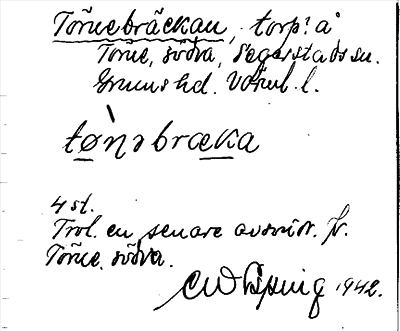 Torñebräckan, torp? å
Torñe, södra, Segerstads sn.
Grums hd. Värml. l.
tøṇəbræka
4 st.
Trol. en senare avsöndr. fr.
Torñe, södra.
1942.